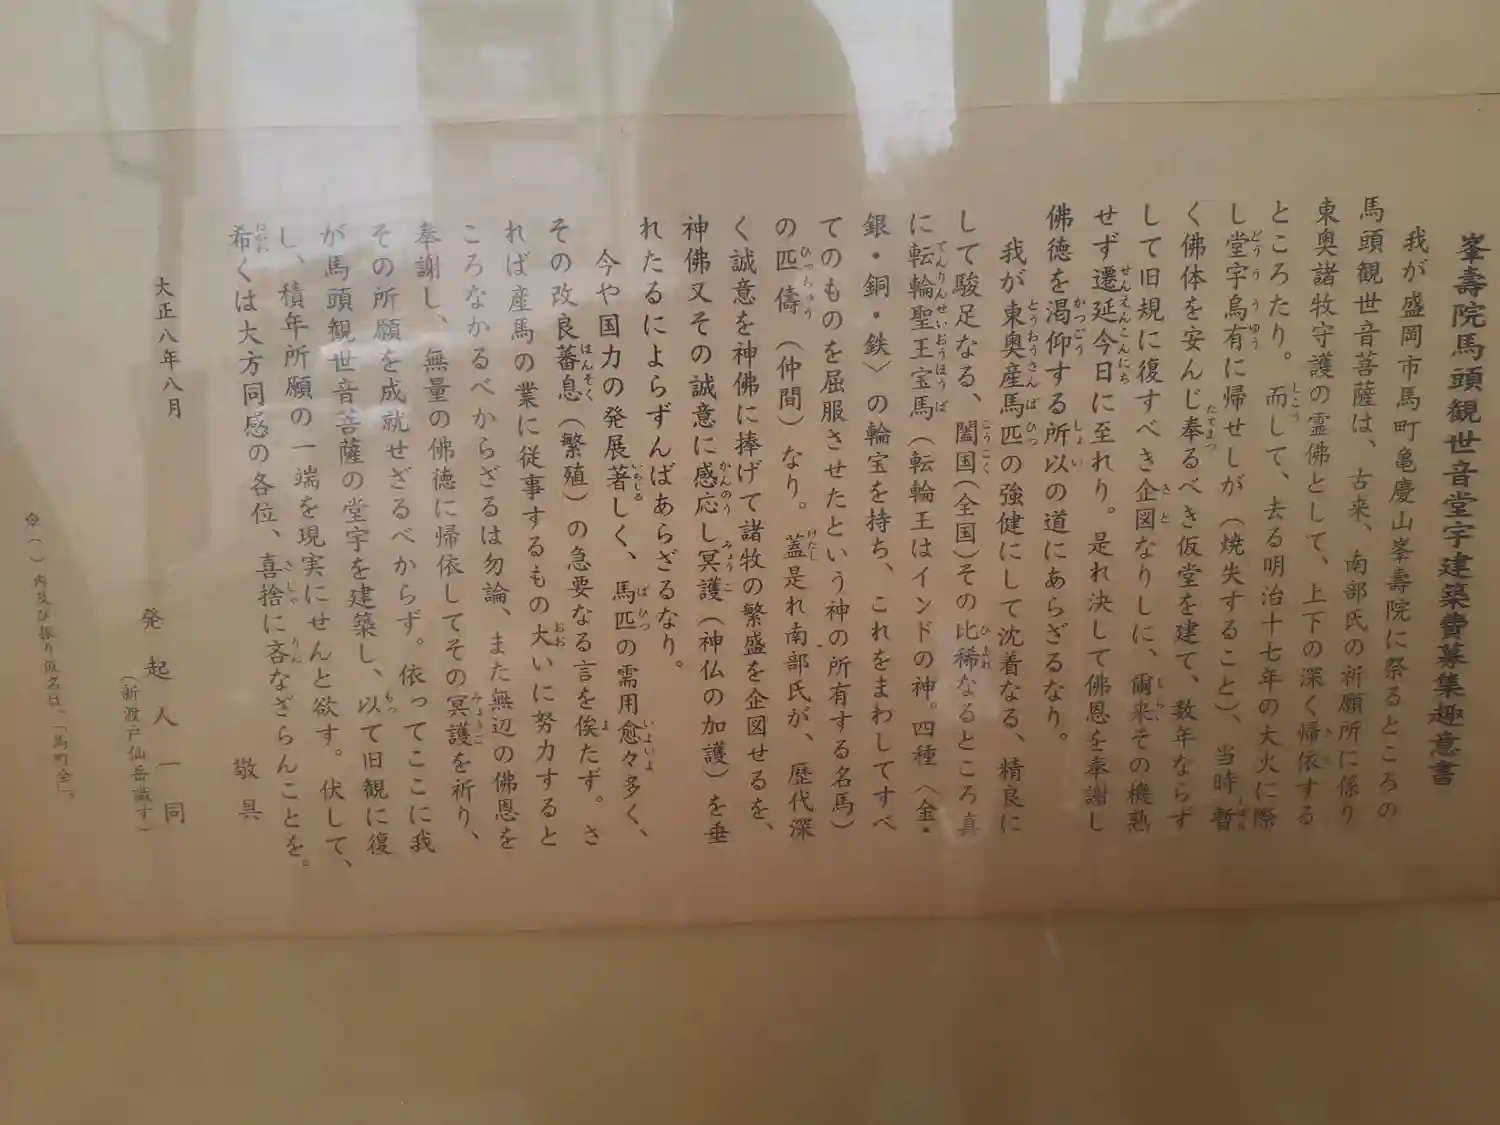 峯壽院馬頭観世音堂宇建築費募集趣意書
我が盛岡市馬町亀慶山峯壽院に祭るところの
馬頭観世音菩薩は、古来、南部氏の祈願所に係り
東奥諸牧守護の霊佛として、上下の深く帰依する
ところたり。而して、去る明治十七年の大火に際
し堂宇烏有に帰せしが（焼失すること）、当時暫
く佛体を安んじ奉るべき仮堂を建て、数年ならず
して旧規に復すべき企図なりしに、爾来その機熟
せず遷延今日に至れり。是れ決して佛恩を奉謝し
佛徳を渇仰する所以の道にあらざるなり。
我が東奥産馬匹の強健にして沈着なる、精良に
して駿足なる、闔国（全国）その比稀なるところ真
に転輪聖王宝馬（転輪王はインドの神。四種〈金・
銀・銅・鉄〉の輪宝を持ち、これをまわしてすべ
てのものを屈服させたという神の所有する名馬）
の匹儔（仲間）なり。蓋是れ南部氏が、歴代深
く誠意を神佛に捧げて諸牧の繁盛を企図せるを、
神佛又その誠意に感応し冥護（神仏の加護）を垂
れたるによらずんばあらざるなり。
今や国力の発展著しく、馬匹の需用愈々多く、
その改良蕃息（繁殖）の急要なる言を俟たず。さ
れば産馬の業に従事するもの大いに努力すると
ころなかるべからざるは勿論、また無辺の佛恩を
奉謝し、無量の佛徳に帰依してその冥護を祈り、
その所願を成就せざるべからず。依ってここに我
が馬頭観世音菩薩の堂宇を建築し、以て旧観に復
し、積年所願の一端を現実にせんと欲す。伏して、
希くは大方同感の各位、喜捨に吝なざらんことを。
敬具
大正八年八月
発起人一同
（新渡戸仙岳識す）
内及び振り仮名は、「馬町会」。